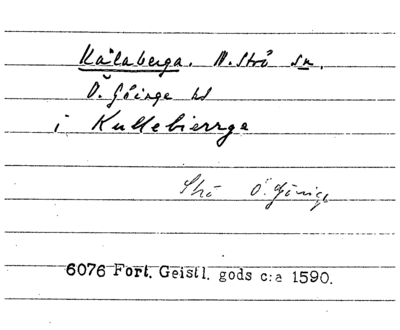 Kålaberga. N. Strö sn.
Ö. Göinge hd
i Kullebierrge
Strö Ö. Göinge
6076 Fort. Geistl. gods c:a 1590.